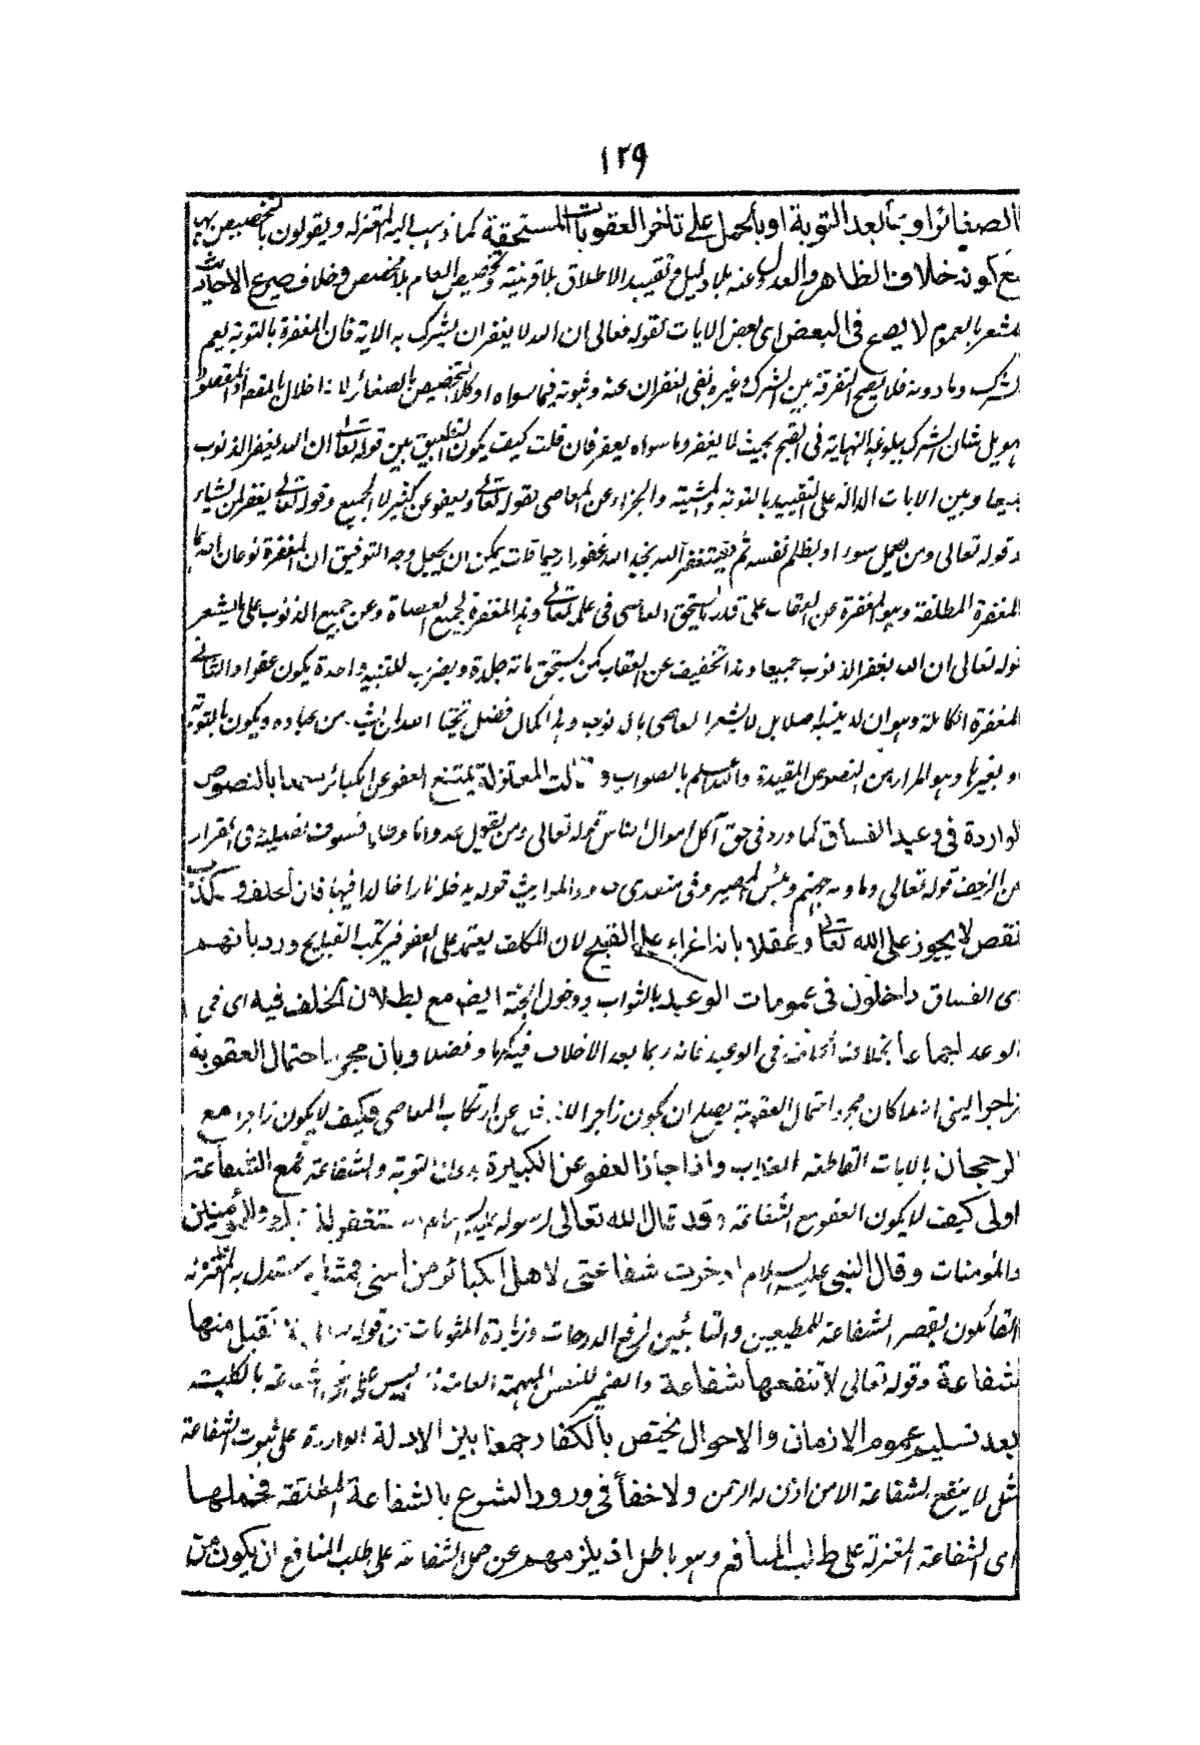 ١٢٩
الصغائر او بما بعد التوبة او بالحمل على تاخر العقوبات المستحقة كما ذهب اليه المعتزلة ويقولون بالتخصيص بها
مع كونه خلاف الظاهر والعدول عنه بلا دليل وتقييد الاطلاق بلا قرينة وتخصيص العام بلا مخصص وخلاف صريح الاحاديث
المشعر بالعموم لا يصح فى البعض اى بعض الايات لقوله تعالى ان الله لا يغفر ان يشرك به الاية فان المغفرة بالتوبة يعم
الشرك وما دونه فلا يصح التفرقة بين الشرك وغيره بنفى الغفران عنه وثبوته فيما سواه او كالتخصيص بالصغائر لانه اخلال بالمقصود
تهويل شان الشرك ببلوغه النهاية فى القبح بحيث لا يغفر وما سواه يغفر فان قلت كيف يكون التطبيق بين قوله تعالى ان الله يغفر الذنوب
جميعا وبين الايات الدالة على التقييد بالتوبة والمشية والجزاء عن المعاصى بقوله تعالى ويعفو عن كثير لا الجميع وقوله تعالى يغفر لمن يشاء
وقوله تعالى ومن يعمل سوءا او يظلم نفسه ثم يستغفر الله يجد الله غفورا رحيما قلت يمكن ان يجعل وجه التوفيق ان المغفرة نوعان احدهما
المغفرة المطلقة وهو المغفرة عن العقاب على قدر ما يستحق العاصى فى علمه تعالى وهذا المغفرة لجميع العصاة وعن جميع الذنوب على ما يشعر
قوله تعالى ان الله يغفر الذنوب جميعا وهذا تخفيف عن العقاب كمن يستحق مائة جلدة ويضرب للتنبيه واحدة يكون عفوا والثانى
المغفرة الكاملة وهو ان اصلا بل لا يشعر العاصى بال ذنوب وهذا كمال فضل يختص الله ان يشاء من عباده ويكون بالتوبة
وبغيرها وهو المراد من النصوص المقيدة والله اعلم بالصواب وقالت المعتزلة يمتنع العفو عن الكبائر سمعا بالنصوص
الواردة فى وعيد الفساق كما ورد فى حق آكل اموال الناس قوله تعالى ومن يفعل عدوانا وظلما فسوف نصليه وفى الفرار
من الزحف قوله تعالى وماوىه جهنم وبئس المصير وفى متعدى حدود المواريث قوله يدخله نارا خالدا فيها فان الخلف وكذب
نقص لا يجوز على الله تعالى وعقلا بانه اغراء على القبيح لان المكلف يعتمد على العفو فيرتكب القبايح ورد بانهم
اى الفساق داخلون فى عمومات الوعيد بالثواب ودخول الجنة ايضا مع بطلان الخلف فيه اى فى
الوعد اجماعا بخلاف الخلف فى الوعيد فانه ربما يعد الاخلاف فيه كرما وفضلا وبان مجرد احتمال العقوبة
زاجرا ليعنى انه ما كان مجرد احتمال العقوبة يصلح ان يكون زاجرا عن ارتكاب المعاصى فكيف لا يكون زاجرا مع
الرجحان بالايات القاطعة العذاب واذا جاز العفو عن الكبيرة بدون التوبة والشفاعة فمع الشفاعة
اولى كيف لا يكون العفو مع الشفاعة وقد قال الله تعالى لرسوله عليه السلام استغفر لذنبك وللمؤمنين
والمؤمنات وقال النبى عليه السلام ادخرت شفاعتى لاهل الكبائر من امتى فمثل ما يستدل به المعتزلة
القائلون بقصر الشفاعة للمطيعين والتائبين لرفع الدرجات وزيادة المثوبات من قوله تقبل منها
شفاعة وقوله تعالى لا تنفعها شفاعة والضمير للنفس المبهمة العامة ليس على نفى الشفاعة بالكلية
بعد تسليم عموم الازمان والاحوال يختص بالكفار جمعا بين الادلة الواردة على ثبوت الشفاعة
مثل لا ينفع الشفاعة الا من اذن له الرحمن ولا خفأ فى ورود الشرع بالشفاعة المطلقة فحملها
اى الشفاعة المعتزلة على طلب المنافع وهو باطل اذ يلزمهم عن حمل الشفاعة على طلب المنافع ان يكون من